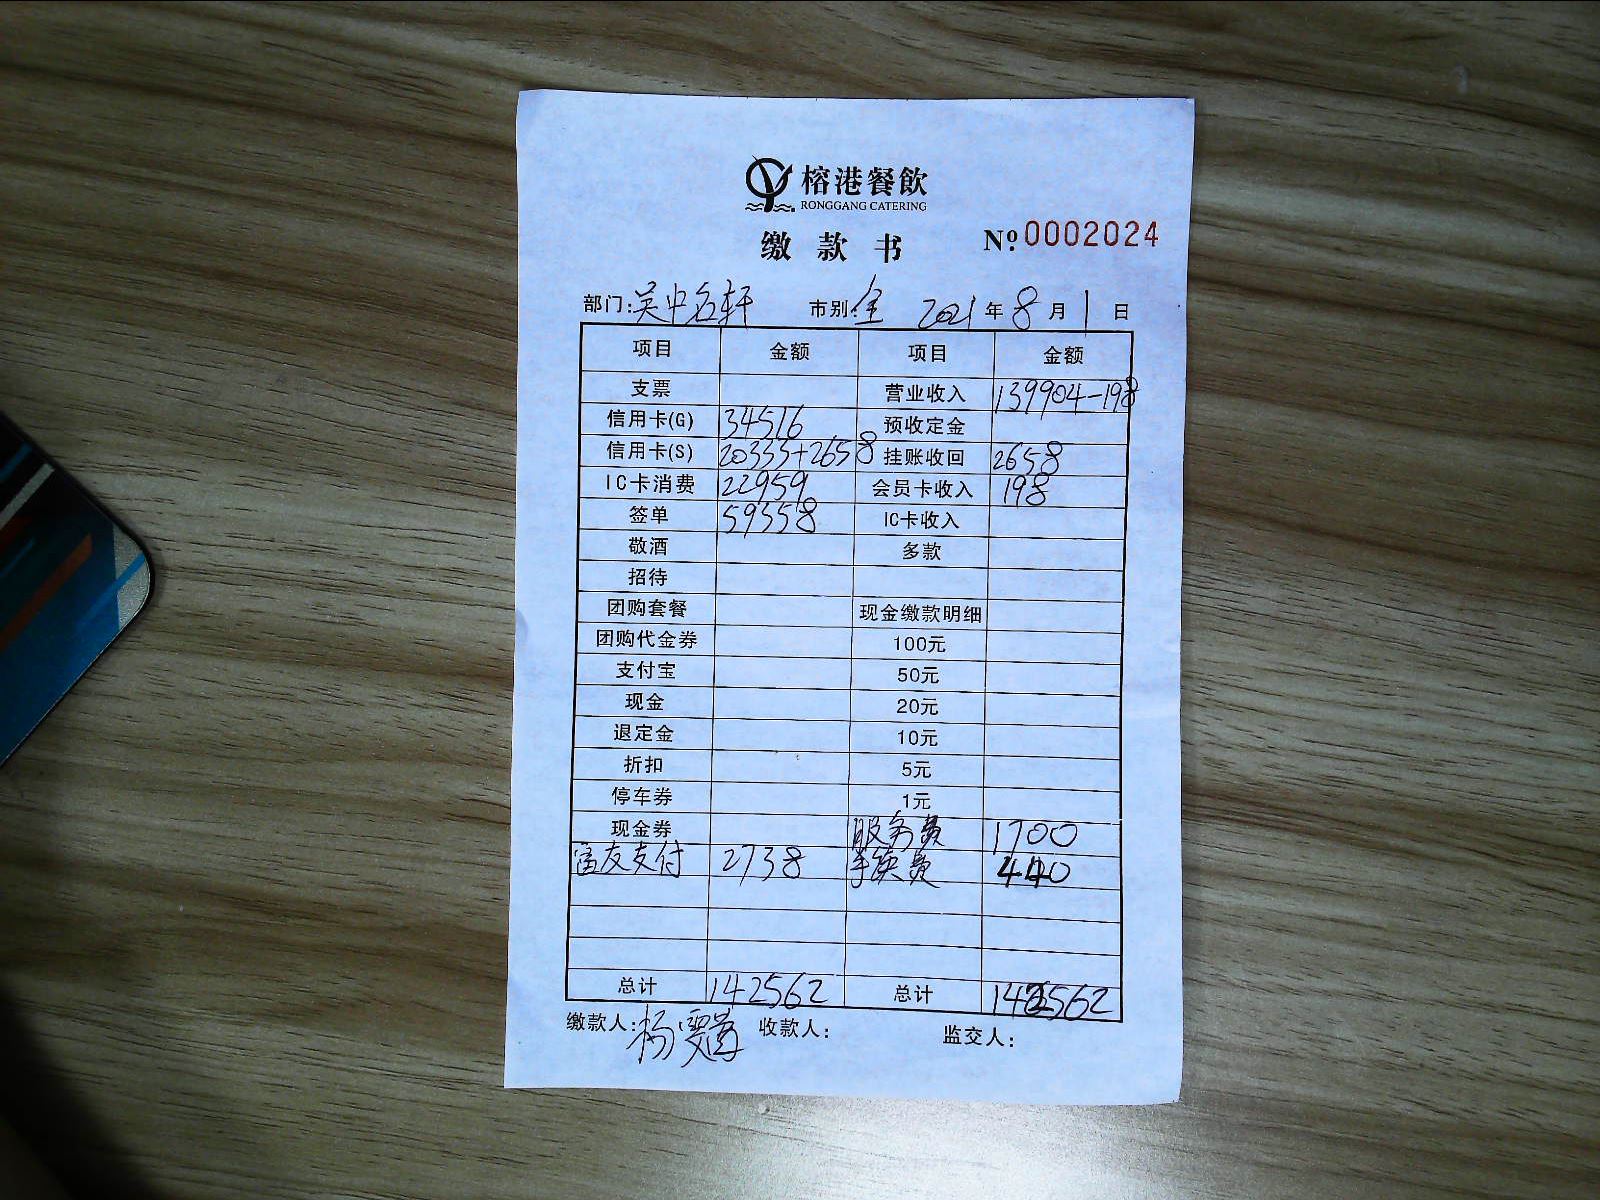 榕港餐飲
RONGGANG CATERING
缴款书 № 0002024
部门:吴中名轩 市别:全 2021年8月1日
项目 金额 项目 金额
支票 营业收入 139904-198
信用卡(G) 34516 预收定金
信用卡(S) 20333+2658 挂账收回 2658
IC卡消费 22959 会员卡收入 198
签单 59358 IC卡收入
敬酒 多款
招待
团购套餐 现金缴款明细
团购代金券 100元
支付宝 50元
现金 20元
退定金 10元
折扣 5元
停车券 1元
现金券 服务费 1700
富友支付 2738 手续费 440
总计 142562 总计 142562
缴款人:杨雯 收款人: 监交人: